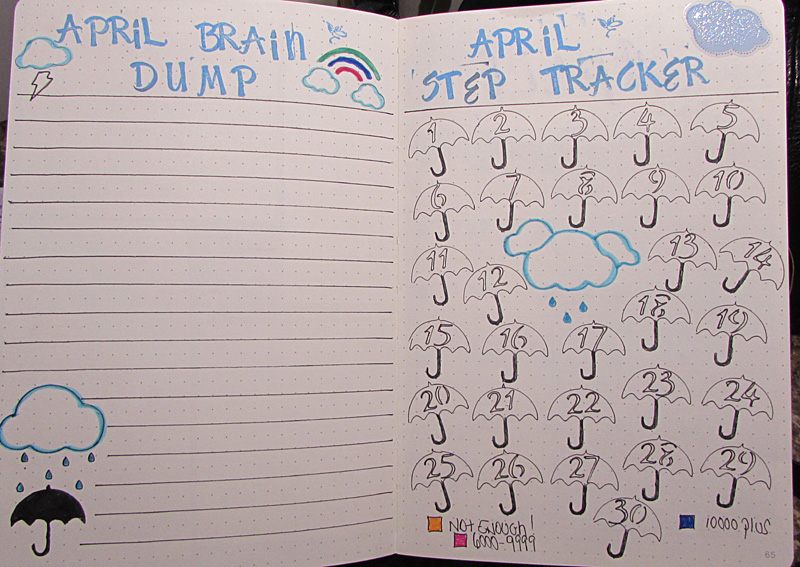 APRIL BRAIN
DUMP
APRIL
STEP TRACKER
1 2 3 4 5
6 7 8 9 10
11 12 13 14
15 16 17 18 19
20 21 22 23 24
25 26 27 28 29
30
NOT ENOUGH!
6000-9999
10000 plus
65